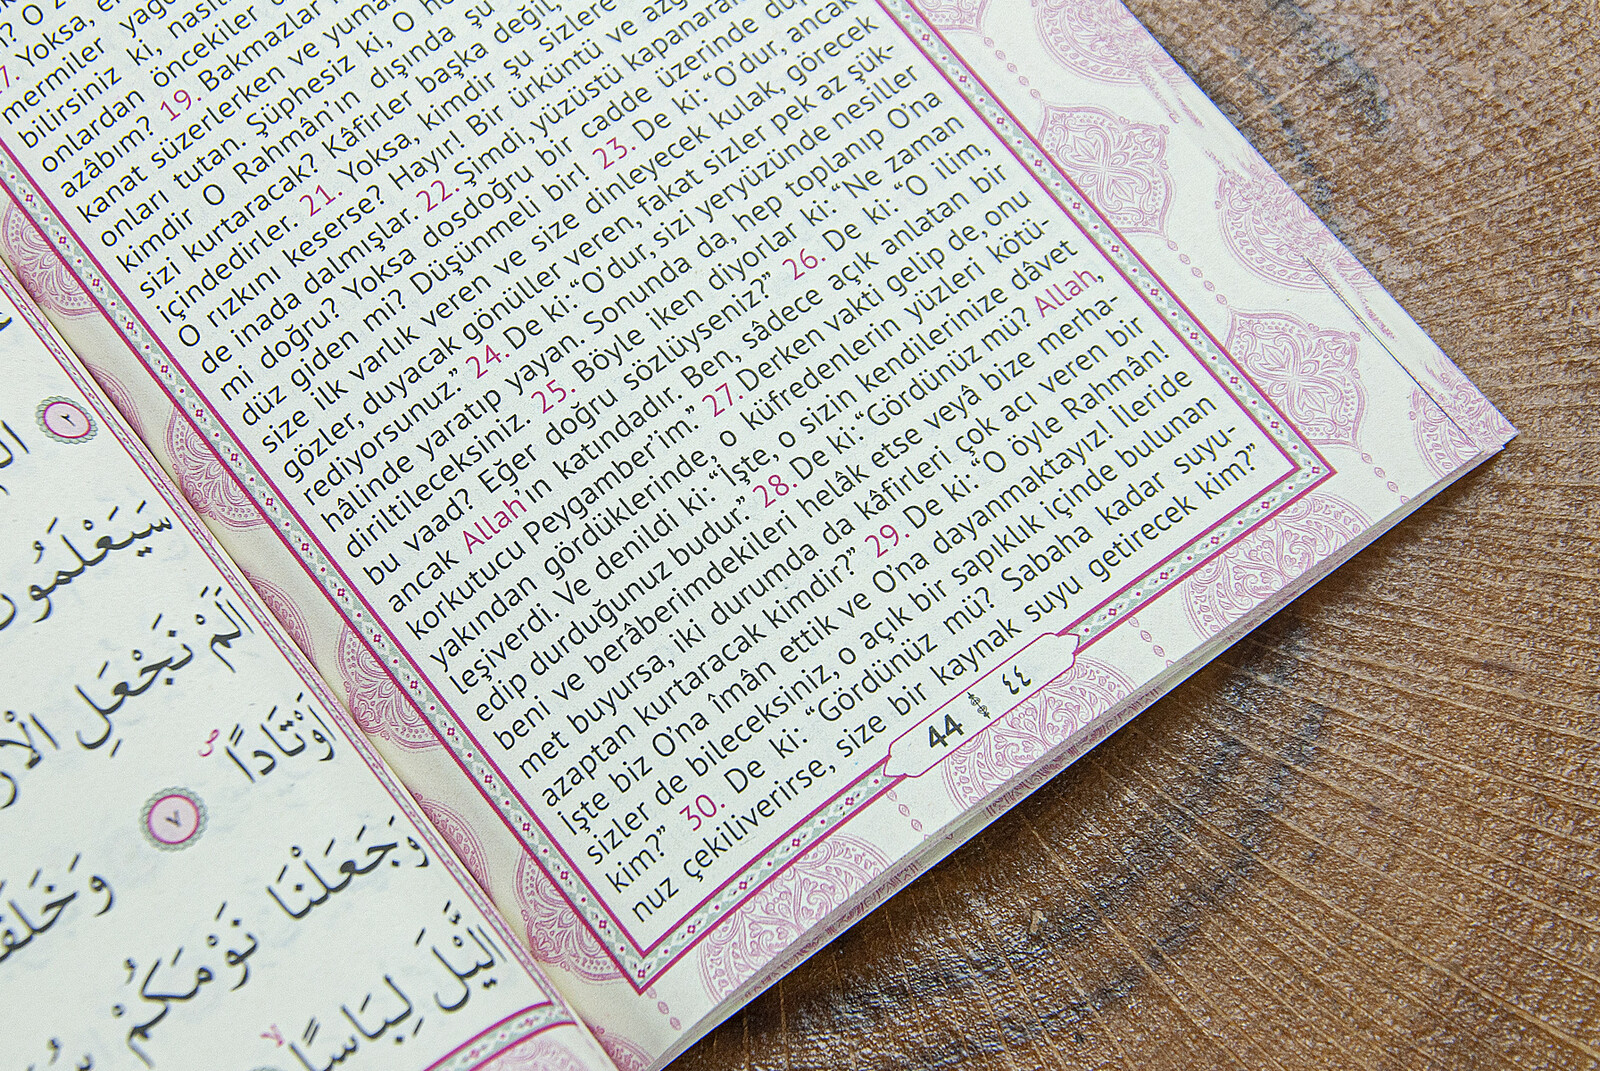 Yoksa,
mermiler
bilirsiniz ki,
onlardan öncekiler
azâbım? 19. Bakmazlar
kanat süzerlerken ve
onları tutan. Şüphesiz ki, O
kimdir O Rahmân’ın dışında şu
sizi kurtaracak? Kâfirler başka değil,
içindedirler. 21. Yoksa, kimdir şu sizlere
O rızkını keserse? Hayır! Bir ürküntü ve
de inada dalmışlar. 22. Şimdi, yüzüstü kapanarak
mi doğru? Yoksa dosdoğru bir cadde üzerinde
düz giden mi? Düşünmeli bir! 23. De ki: “O’dur, ancak
size ilk varlık veren ve size dinleyecek kulak, görecek
gözler, duyacak gönüller veren, fakat sizler pek az şük-
rediyorsunuz.” 24. De ki: “O’dur, sizi yeryüzünde nesiller
hâlinde yaratıp yayan. Sonunda da, hep toplanıp O’na
diriltileceksiniz. 25. Böyle iken diyorlar ki: “Ne zaman
bu vaad? Eğer doğru sözlüyseniz?” 26. De ki: “O ilim,
ancak Allah’ın katındadır. Ben, sâdece açık anlatan bir
korkutucu Peygamber’im.” 27. Derken vakti gelip de, onu
yakından gördüklerinde, o küfredenlerin yüzleri kötü-
leşiverdi. Ve denildi ki: “İşte, o sizin kendilerinize dâvet
edip durduğunuz budur.” 28. De ki: “Gördünüz mü? Allah,
beni ve berâberimdekileri helâk etse veyâ bize merha-
met buyursa, iki durumda da kâfirleri çok acı veren bir
azaptan kurtaracak kimdir?” 29. De ki: “O öyle Rahmân!
İşte biz O’na îmân ettik ve O’na dayanmaktayız! İleride
sizler de bileceksiniz, o açık bir sapıklık içinde bulunan
kim?” 30. De ki: “Gördünüz mü? Sabaha kadar suyu-
nuz çekiliverirse, size bir kaynak suyu getirecek kim?”
44 ٤٤
٢
سَيَعْلَمُونَ
اَلَمْ نَجْعَلِ
اَوْتَادًا ص ٧
وَجَعَلْنَا نَوْمَكُمْ
الَّيْلَ لِبَاسًا لا